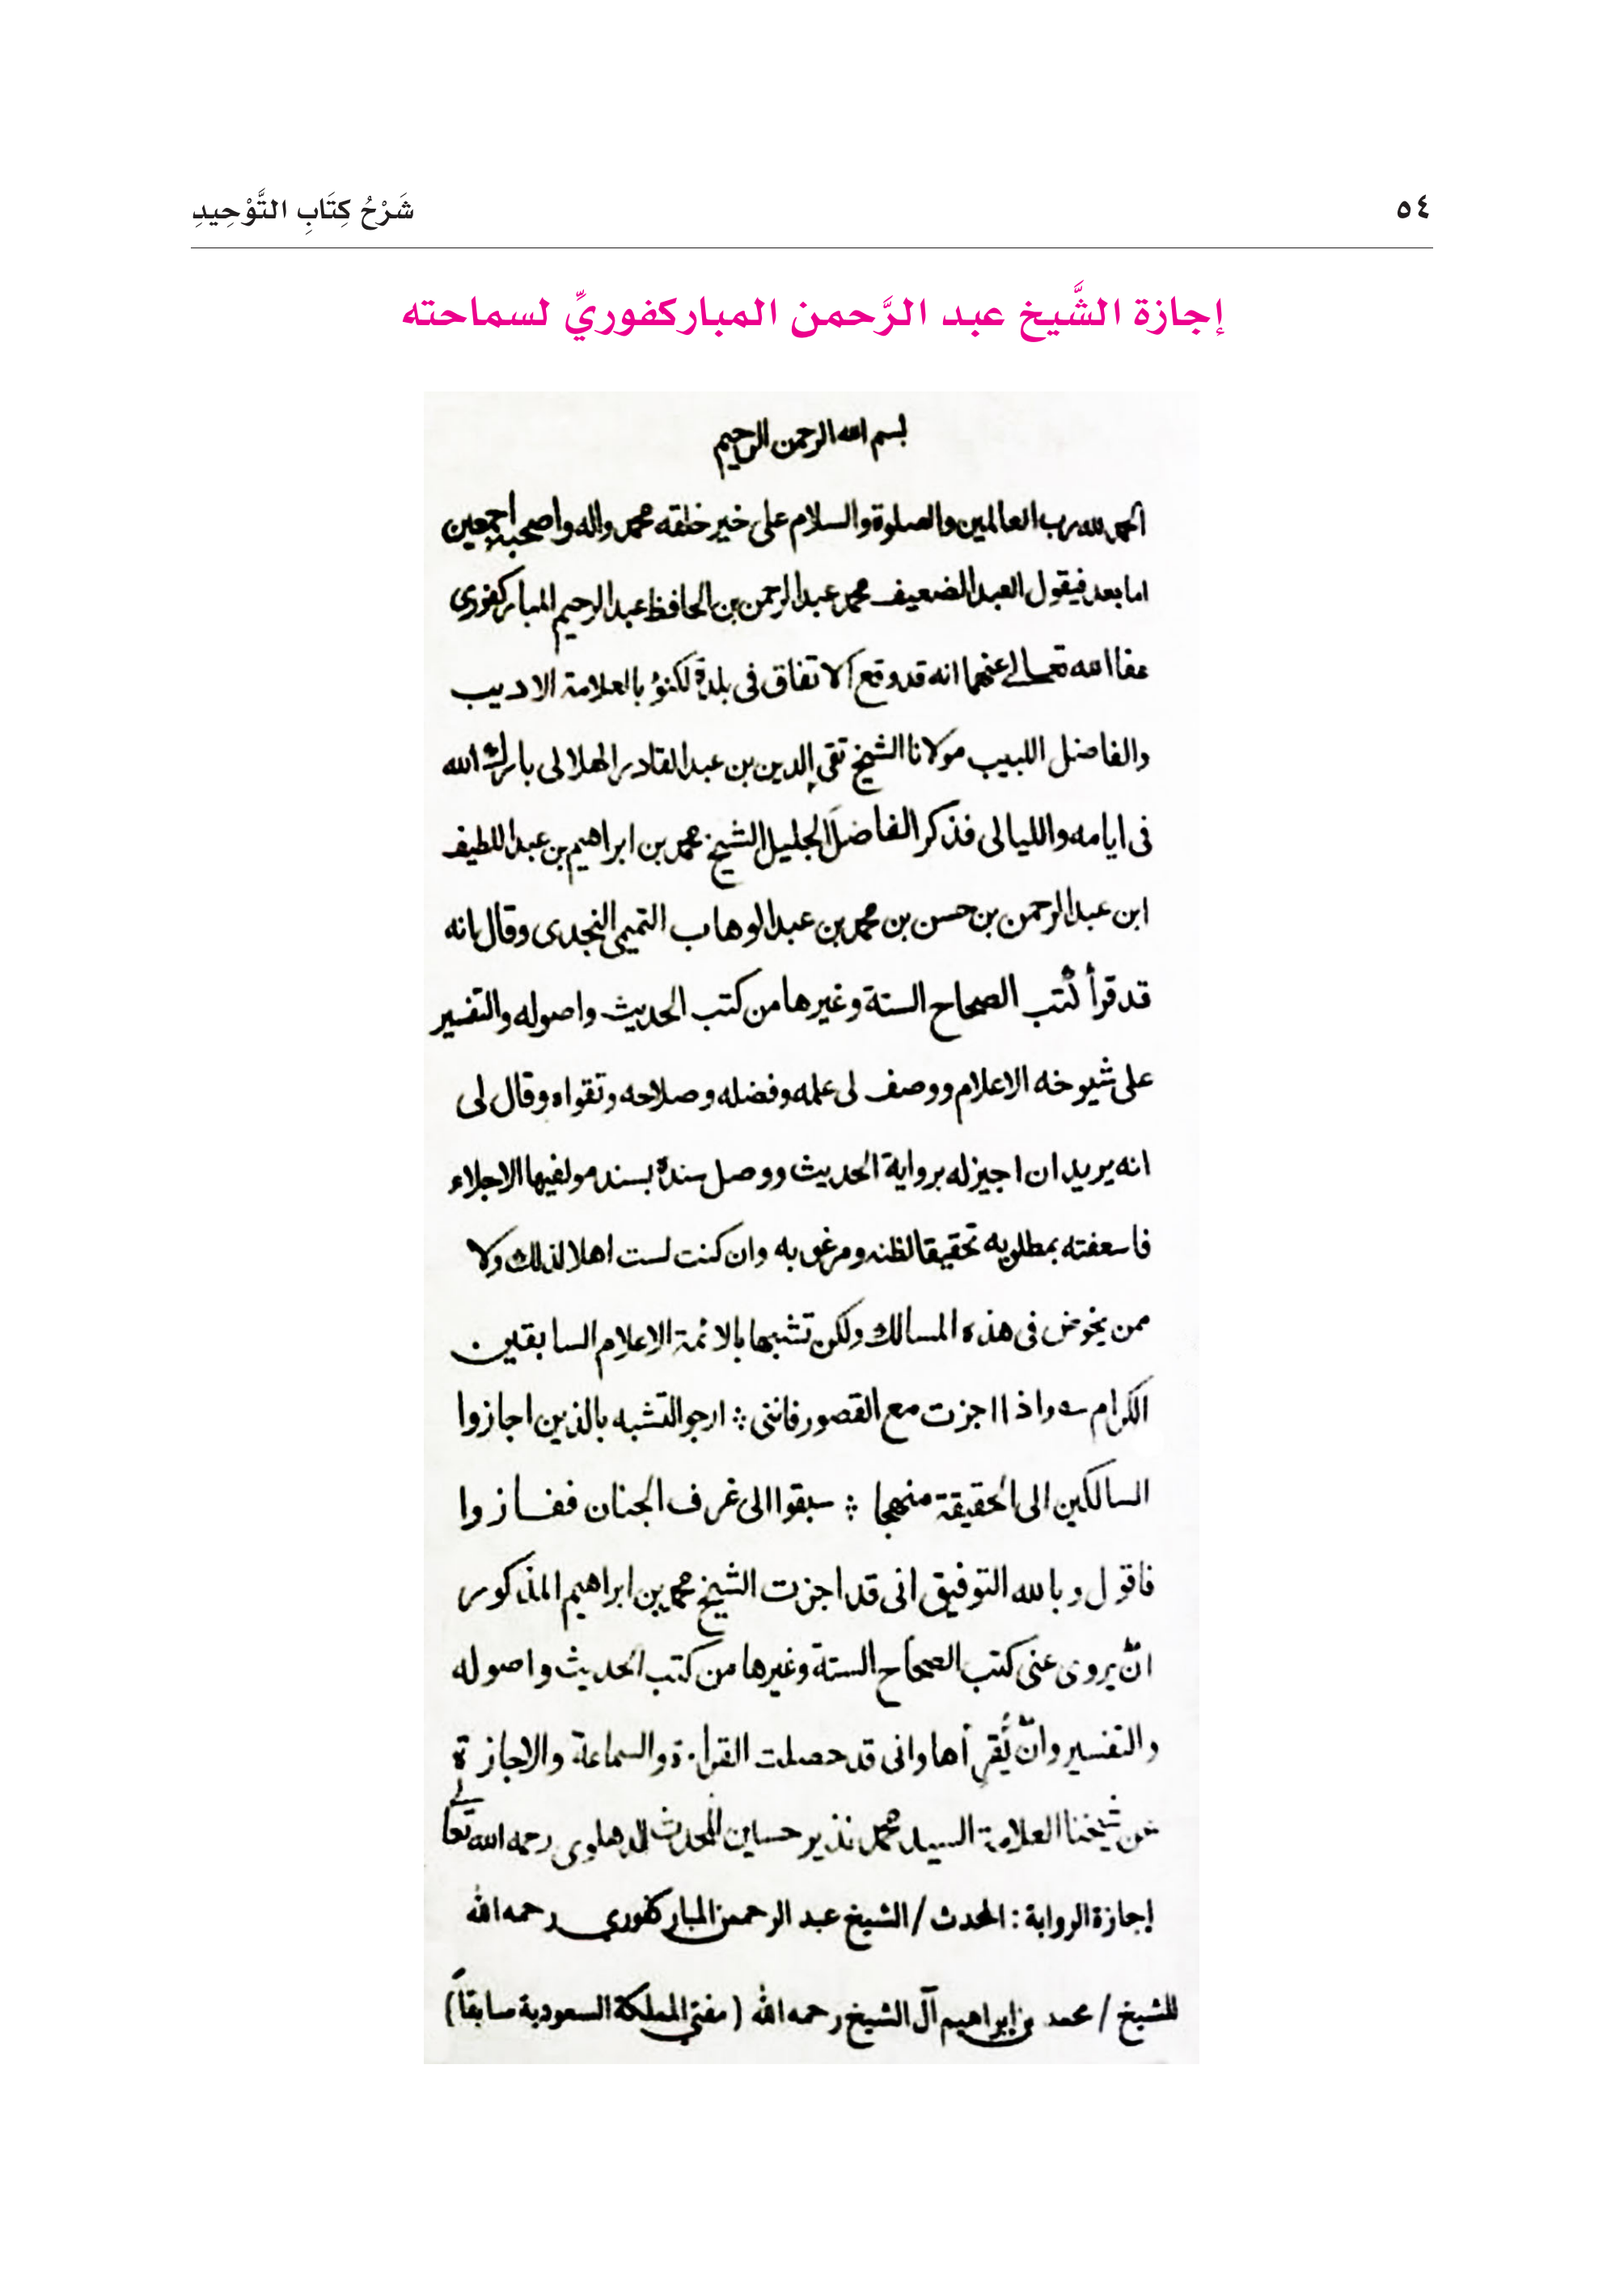 ٥٤
شَرْحُ كِتَابِ التَّوْحِيدِ
إجازة الشَّيخ عبد الرَّحمن المباركفوريِّ لسماحته
بسم الله الرحمن الرحيم
الحمد لله رب العالمين والصلوة والسلام على خير خلقه محمد واله واصحبه اجمعين
اما بعد فيقول العبد الضعيف محمد عبد الرحمن بن الحافظ عبد الرحيم المباركفورى
عفا الله تعالے عنهما انه قد وقع الاتفاق فى بلدة لكنؤ بالعلامة الاديب
والفاضل اللبيب مولانا الشيخ تقى الدين بن عبد القادر الهلالى بارك الله
فى ايامه والليالى فذكر الفاضل الجليل الشيخ محمد بن ابراهيم بن عبد اللطيف
ابن عبد الرحمن بن حسن بن محمد بن عبد الوهاب التميمى النجدى وقال بانه
قد قرأ كُتب الصحاح الستة وغيرها من كتب الحديث واصوله والتفسير
على شيوخه الاعلام ووصف لى علمه وفضله وصلاحه وتقواه وقال لى
انه يريد ان اجيز له برواية الحديث ووصل سنده بسند مولفيها الاجلاء
فاسعفته بمطلوبه تحقيقا لظنه ومرغوبه وان كنت لست اهلا لذلك ولا
ممن يخوض فى هذه المسالك ولكن تشبها بالائمة الاعلام السابقين
الكرام ؎ واذا اجزت مع القصور فاننى ⁘ ارجو التشبه بالذين اجازوا
السالكين الى الحقيقة منهجا ⁘ سبقوا الى غرف الجنان ففازوا
فاقول وبالله التوفيق انى قد اجزت الشيخ محمد بن ابراهيم المذكور
انْ يروى عنى كتب الصحاح الستة وغيرها من كتب الحديث واصوله
والتفسير وانْ يُقرِأها وانى قد حصلت القراءة والسماعة والاجازة
عن شيخنا العلامة السيد محمد نذير حسين المحدث الدهلوى رحمه الله تعالے
إجازة الرواية : المحدث / الشيخ عبد الرحمن المباركفوري رحمه الله
للشيخ / محمد بن إبراهيم آل الشيخ رحمه الله ( مفتي المملكة السعودية سابقاً )